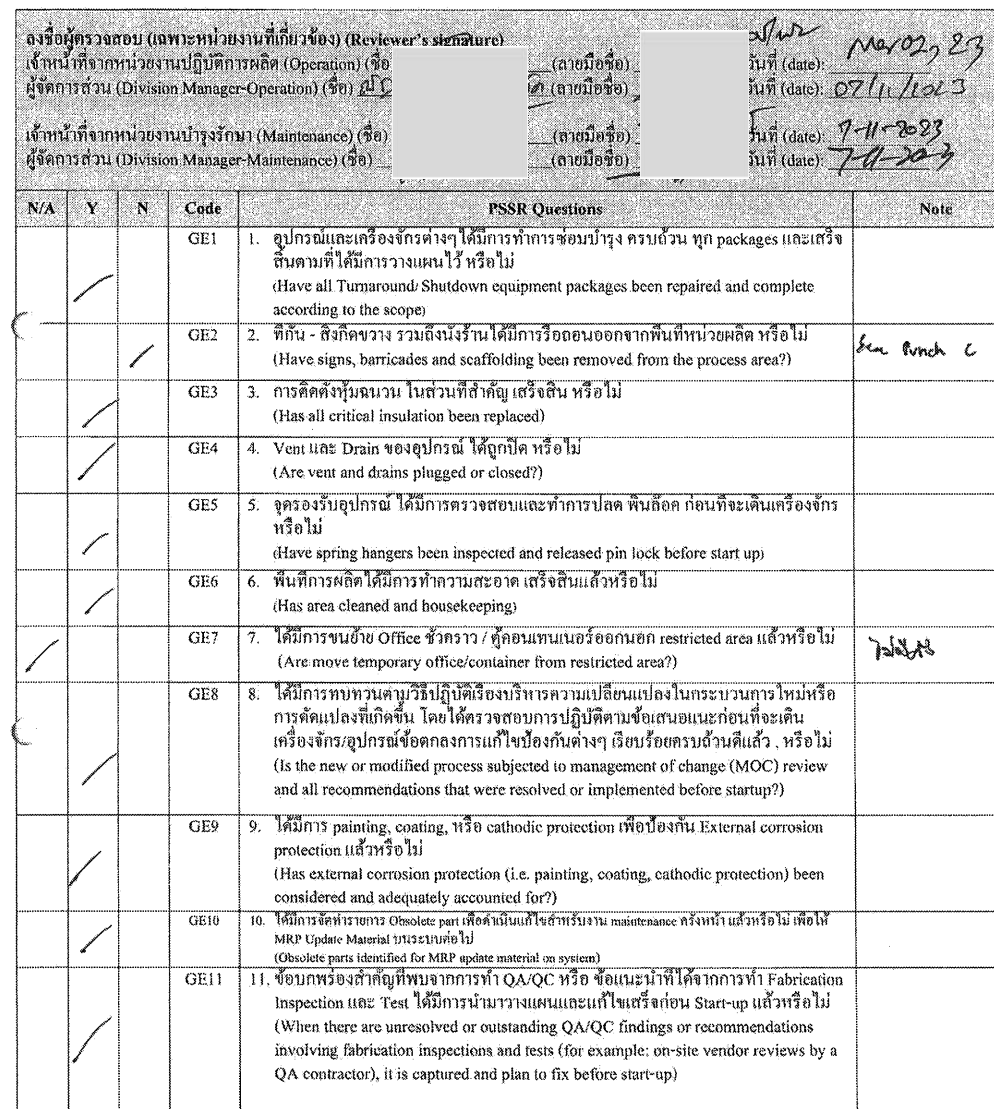 ลงชื่อผู้ตรวจสอบ (เฉพาะหน่วยงานที่เกี่ยวข้อง) (Reviewer's signature)
เจ้าหน้าที่จากหน่วยงานปฏิบัติการผลิต (Operation) (ชื่อ (ลายมือชื่อ) วันที่ (date): Nov 07, 23
ผู้จัดการส่วน (Division Manager-Operation) (ชื่อ) (ลายมือชื่อ) วันที่ (date): 07/11/2023
เจ้าหน้าที่จากหน่วยงานบำรุงรักษา (Maintenance) (ชื่อ) (ลายมือชื่อ) วันที่ (date): 7-11-2023
ผู้จัดการส่วน (Division Manager-Maintenance) (ชื่อ) (ลายมือชื่อ) วันที่ (date): 7-11-2023
N/A Y N Code PSSR Questions Note
GE1 1. อุปกรณ์และเครื่องจักรต่างๆ ได้มีการทำการซ่อมบำรุง ครบถ้วน ทุก packages และเสร็จ
สิ้นตามที่ได้มีการวางแผนไว้ หรือไม่
(Have all Turnaround/ Shutdown equipment packages been repaired and complete
according to the scope)
GE2 2. ที่กั้น - สิ่งกีดขวาง รวมถึงนั่งร้านได้มีการรื้อถอนออกจากพื้นที่หน่วยผลิต หรือไม่
(Have signs, barricades and scaffolding been removed from the process area?)
Punch C
GE3 3. การติดตั้งหุ้มฉนวน ในส่วนที่สำคัญ เสร็จสิ้น หรือไม่
(Has all critical insulation been replaced)
GE4 4. Vent และ Drain ของอุปกรณ์ ได้ถูกปิด หรือไม่
(Are vent and drains plugged or closed?)
GE5 5. จุดรองรับอุปกรณ์ ได้มีการตรวจสอบและทำการปลด พินล็อค ก่อนที่จะเดินเครื่องจักร
หรือไม่
(Have spring hangers been inspected and released pin lock before start up)
GE6 6. พื้นที่การผลิตได้มีการทำความสะอาด เสร็จสิ้นแล้วหรือไม่
(Has area cleaned and housekeeping)
GE7 7. ได้มีการขนย้าย Office ชั่วคราว / ตู้คอนเทนเนอร์ออกนอก restricted area แล้วหรือไม่
(Are move temporary office/container from restricted area?)
GE8 8. ได้มีการทบทวนตามวิธีปฏิบัติเรื่องบริหารความเปลี่ยนแปลงในกระบวนการใหม่หรือ
การดัดแปลงที่เกิดขึ้น โดยได้ตรวจสอบการปฏิบัติตามข้อเสนอแนะก่อนที่จะเดิน
เครื่องจักร/อุปกรณ์ข้อตกลงการแก้ไขป้องกันต่างๆ เรียบร้อยครบถ้วนดีแล้ว , หรือไม่
(Is the new or modified process subjected to management of change (MOC) review
and all recommendations that were resolved or implemented before startup?)
GE9 9. ได้มีการ painting, coating, หรือ cathodic protection เพื่อป้องกัน External corrosion
protection แล้วหรือไม่
(Has external corrosion protection (i.e. painting, coating, cathodic protection) been
considered and adequately accounted for?)
GE10 10. ได้มีการจัดทำรายการ Obsolete part เพื่อดำเนินแก้ไขสำหรับงาน maintenance ครั้งหน้า แล้วหรือไม่ เพื่อให้
MRP Update Material บนระบบต่อไป
(Obsolete parts identified for MRP update material on system)
GE11 11. ข้อบกพร่องสำคัญที่พบจากการทำ QA/QC หรือ ข้อแนะนำที่ได้จากการทำ Fabrication
Inspection และ Test ได้มีการนำมาวางแผนและแก้ไขเสร็จก่อน Start-up แล้วหรือไม่
(When there are unresolved or outstanding QA/QC findings or recommendations
involving fabrication inspections and tests (for example: on-site vendor reviews by a
QA contractor), it is captured and plan to fix before start-up)